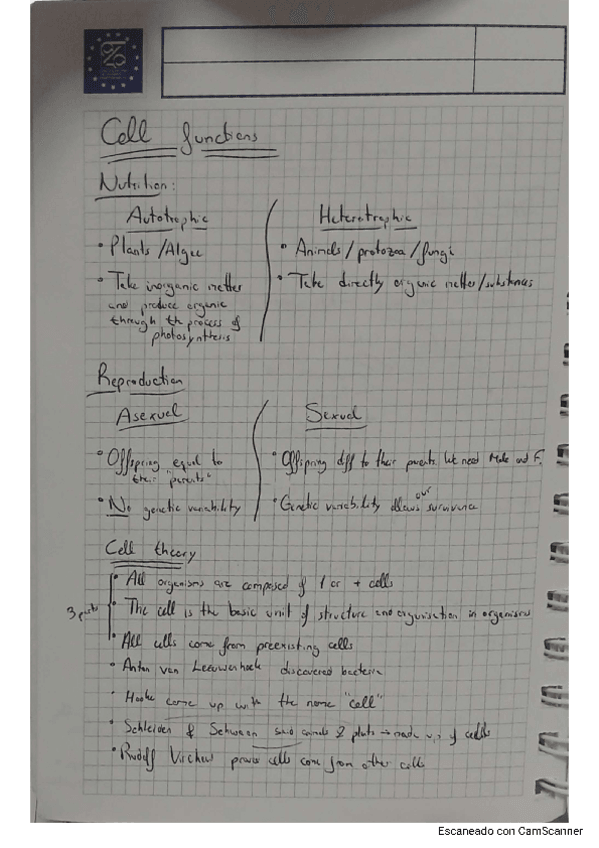 Cell functions
Nutrition:
Autotrophic
Heterotrophic
• Plants/Algae
• Animals/protozoa/fungi
• Take inorganic matter
and produce organic
through the process of
photosynthesis
• Take directly organic matter/substances
Reproduction
Asexual
Sexual
• Offspring equal to
their "parents"
• Offspring diff to their parents. We need Male and F.
• No genetic variability
• Genetic variability allows our survivance
Cell theory
3 parts
• All organisms are composed of 1 or + cells
• The cell is the basic unit of structure and organisation in organisms
• All cells come from preexisting cells
• Anton van Leeuwenhoek discovered bacteria
• Hooke come up with the name "cell"
• Schleiden & Schwann said animals & plants → made up of cells
• Rudolf Virchow proves cells come from other cells
Escaneado con CamScanner